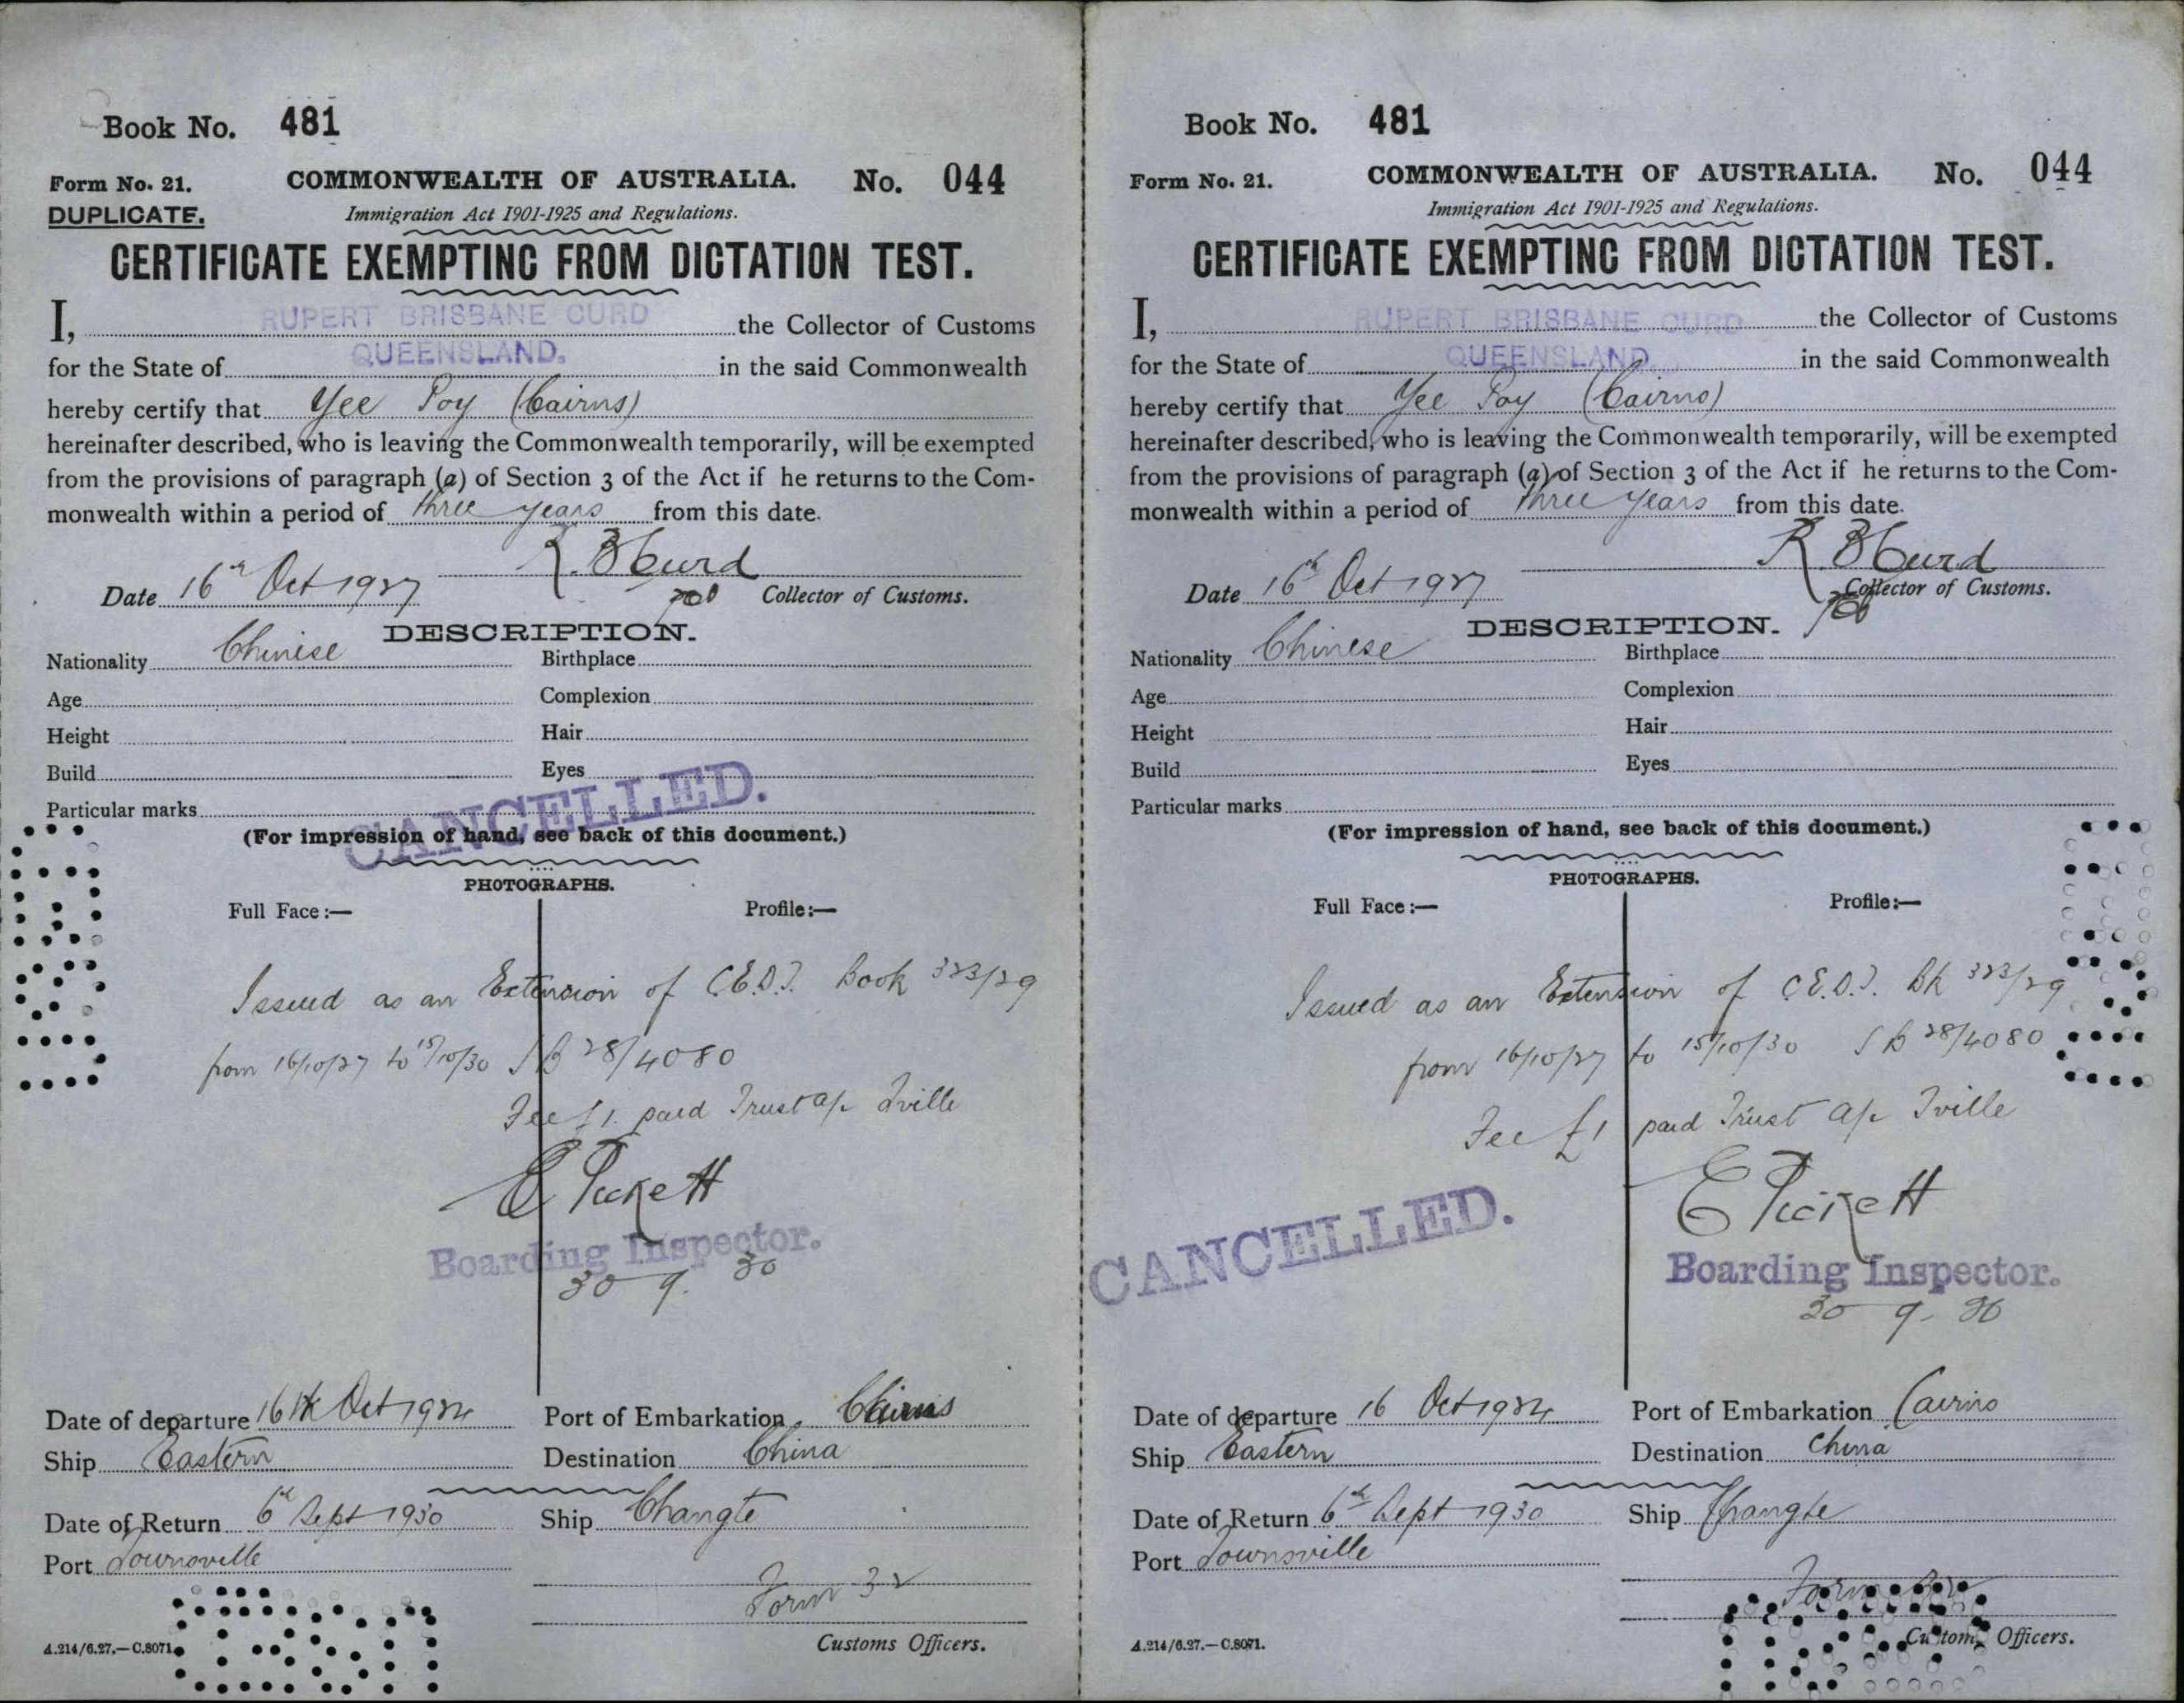 Book No. 481
Form No. 21. COMMONWEALTH OF AUSTRALIA. No. 044
DUPLICATE. Immigration Act 1901-1925 and Regulations.
CERTIFICATE EXEMPTING FROM DICTATION TEST.
I, RUPERT BRISBANE CURD the Collector of Customs
for the State of QUEENSLAND. in the said Commonwealth
hereby certify that Yee Poy (Cairns)
hereinafter described, who is leaving the Commonwealth temporarily, will be exempted
from the provisions of paragraph (a) of Section 3 of the Act if he returns to the Com-
monwealth within a period of three years from this date.
R. B Curd
Date 16th Oct 1927 Collector of Customs.
DESCRIPTION.
Nationality Chinese Birthplace
Age Complexion
Height Hair
Build Eyes
Particular marks
CANCELLED.
(For impression of hand, see back of this document.)
PHOTOGRAPHS.
Full Face:— Profile:—
Issued as an Extension of C.E.D.T. Book 323/29
from 16/10/27 to 15/10/30 S B 28/4080
Fee £1. paid Trust a/c Tville
E Pickett
Boarding Inspector.
30 9. 30
Date of departure 16th Oct 1924 Port of Embarkation Cairns
Ship Eastern Destination China
Date of Return 6th Sept 1930 Ship Changte
Port Townsville
Form 32
A.214/6.27.—C.8071. Customs Officers.
Book No. 481
Form No. 21. COMMONWEALTH OF AUSTRALIA. No. 044
Immigration Act 1901-1925 and Regulations.
CERTIFICATE EXEMPTING FROM DICTATION TEST.
I, RUPERT BRISBANE CURD the Collector of Customs
for the State of QUEENSLAND. in the said Commonwealth
hereby certify that Yee Poy (Cairns)
hereinafter described, who is leaving the Commonwealth temporarily, will be exempted
from the provisions of paragraph (a) of Section 3 of the Act if he returns to the Com-
monwealth within a period of three years from this date.
R. B Curd
Date 16th Oct 1927 Collector of Customs.
DESCRIPTION.
Nationality Chinese Birthplace
Age Complexion
Height Hair
Build Eyes
Particular marks
(For impression of hand, see back of this document.)
PHOTOGRAPHS.
Full Face:— Profile:—
Issued as an Extension of C.E.D.T. Bk 323/29
from 16/10/27 to 15/10/30 S B 28/4080
Fee £1 paid Trust a/c Tville
E Pickett
CANCELLED.
Boarding Inspector.
30 9. 30
Date of departure 16 Oct 1924 Port of Embarkation Cairns
Ship Eastern Destination China
Date of Return 6th Sept 1930 Ship Changte
Port Townsville
Form 32
A.214/6.27.—C.8071. Customs Officers.